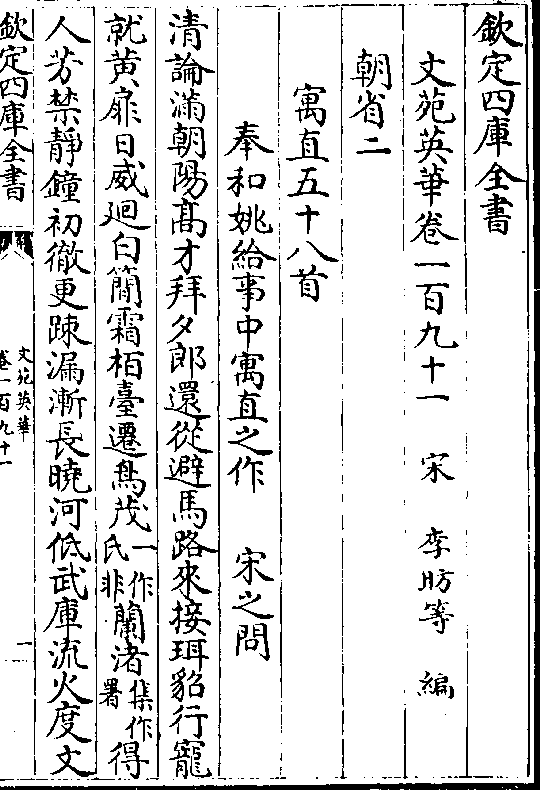 欽定四庫全書
文苑英華卷一百九十一 宋 李昉等 編
朝省二
寓直五十八首
奉和姚給事中寓直之作 宋之問
清論滿朝陽髙才拜夕郎還從避馬路來接珥貂行寵
就黄扉日威廻白簡霜栢臺遷鳥茂一作氏非蘭渚集作署得
人芳禁靜鐘初徹更踈漏漸長曉河低武庫流火度文
欽定四庫全書
文苑英華
卷一百九十一
一